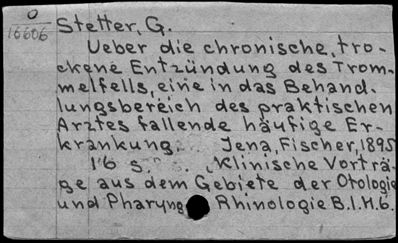 O
16606
Stetter, G.
Ueber die chronische, tro-
ckene Entzündung des Trom-
melfells, eine in das Behand-
lungsbereich des praktischen
Arztes fallende häufige Er-
krankung. Jena, Fischer, 1895
16 s. Klinische Vorträ-
ge aus dem Gebiete der Otologie
und Pharyng Rhinologie B.I.H.6.